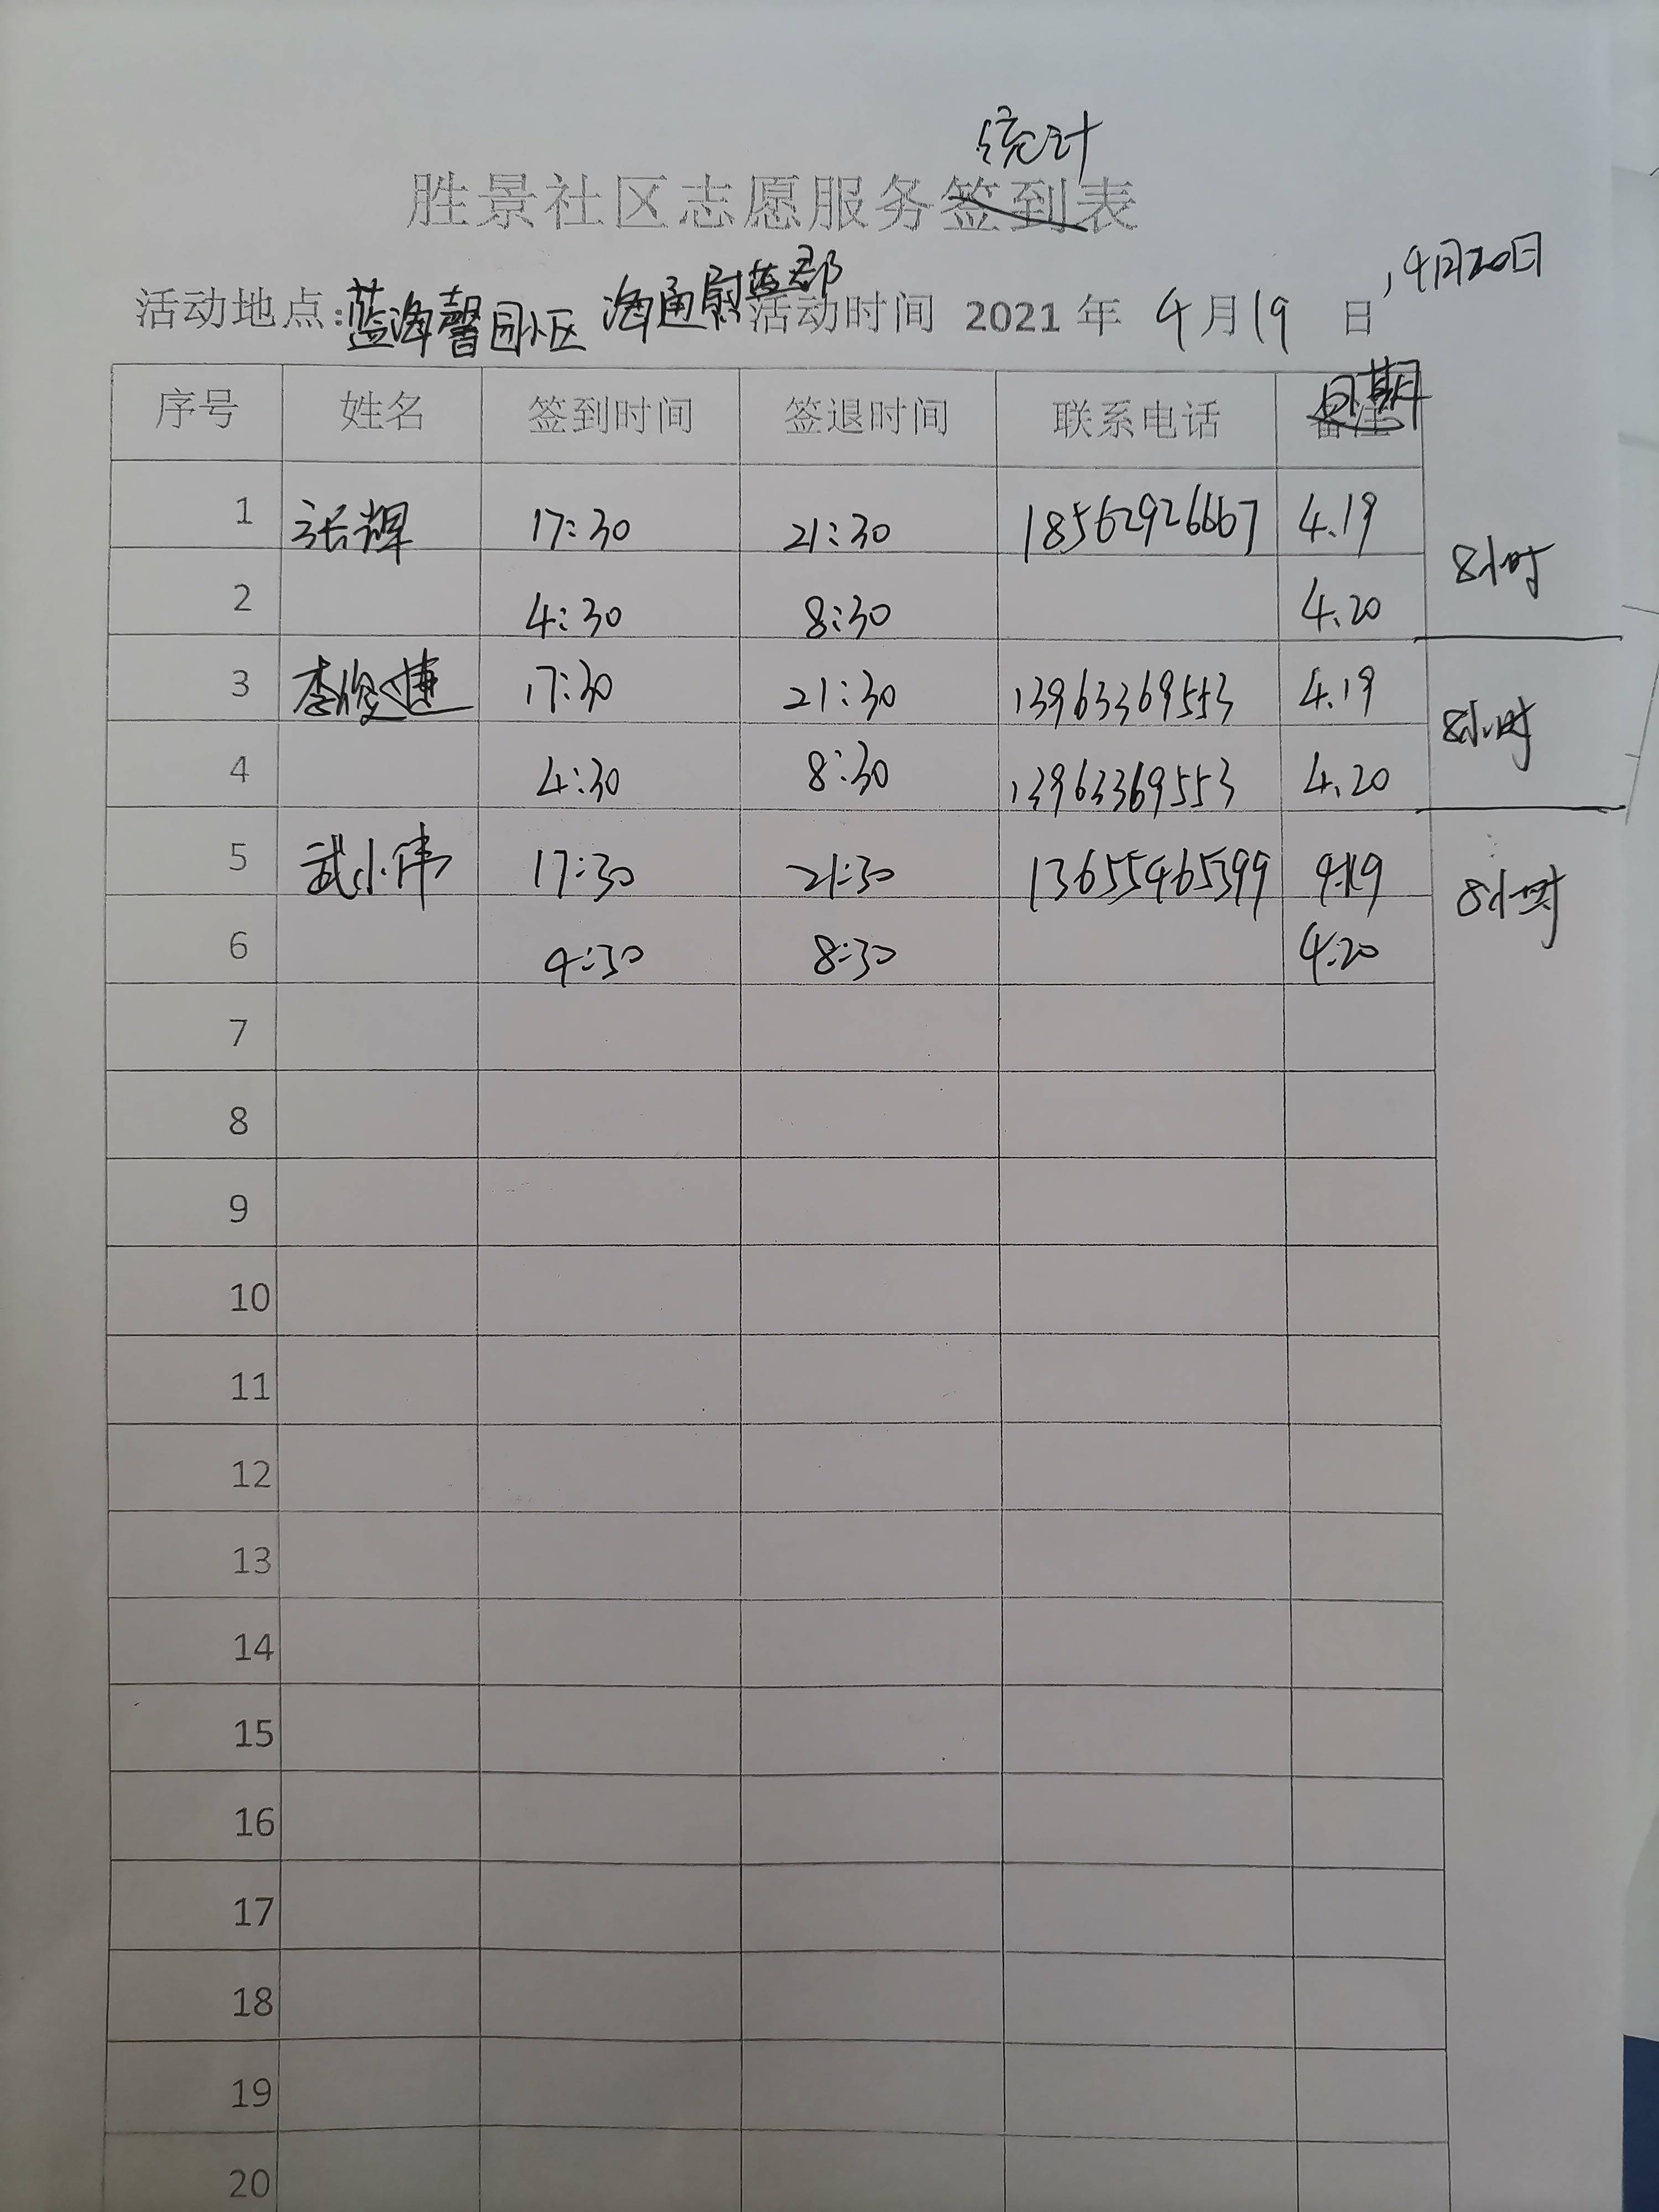 统计
胜景社区志愿服务签到表
活动地点:蓝海馨园小区 海通尉蓝郡 活动时间 2021 年 4 月 19 日,4月20日
序号 姓名 签到时间 签退时间 联系电话 备注 日期
1 张辉 17:30 21:30 18562926667 4.19
8小时
2 4:30 8:30 4.20
3 李俊捷 17:30 21:30 13963369553 4.19
8小时
4 4:30 8:30 13963369553 4.20
5 武小伟 17:30 21:30 13655465399 4.19
8小时
6 4:30 8:30 4.20
7
8
9
10
11
12
13
14
15
16
17
18
19
20